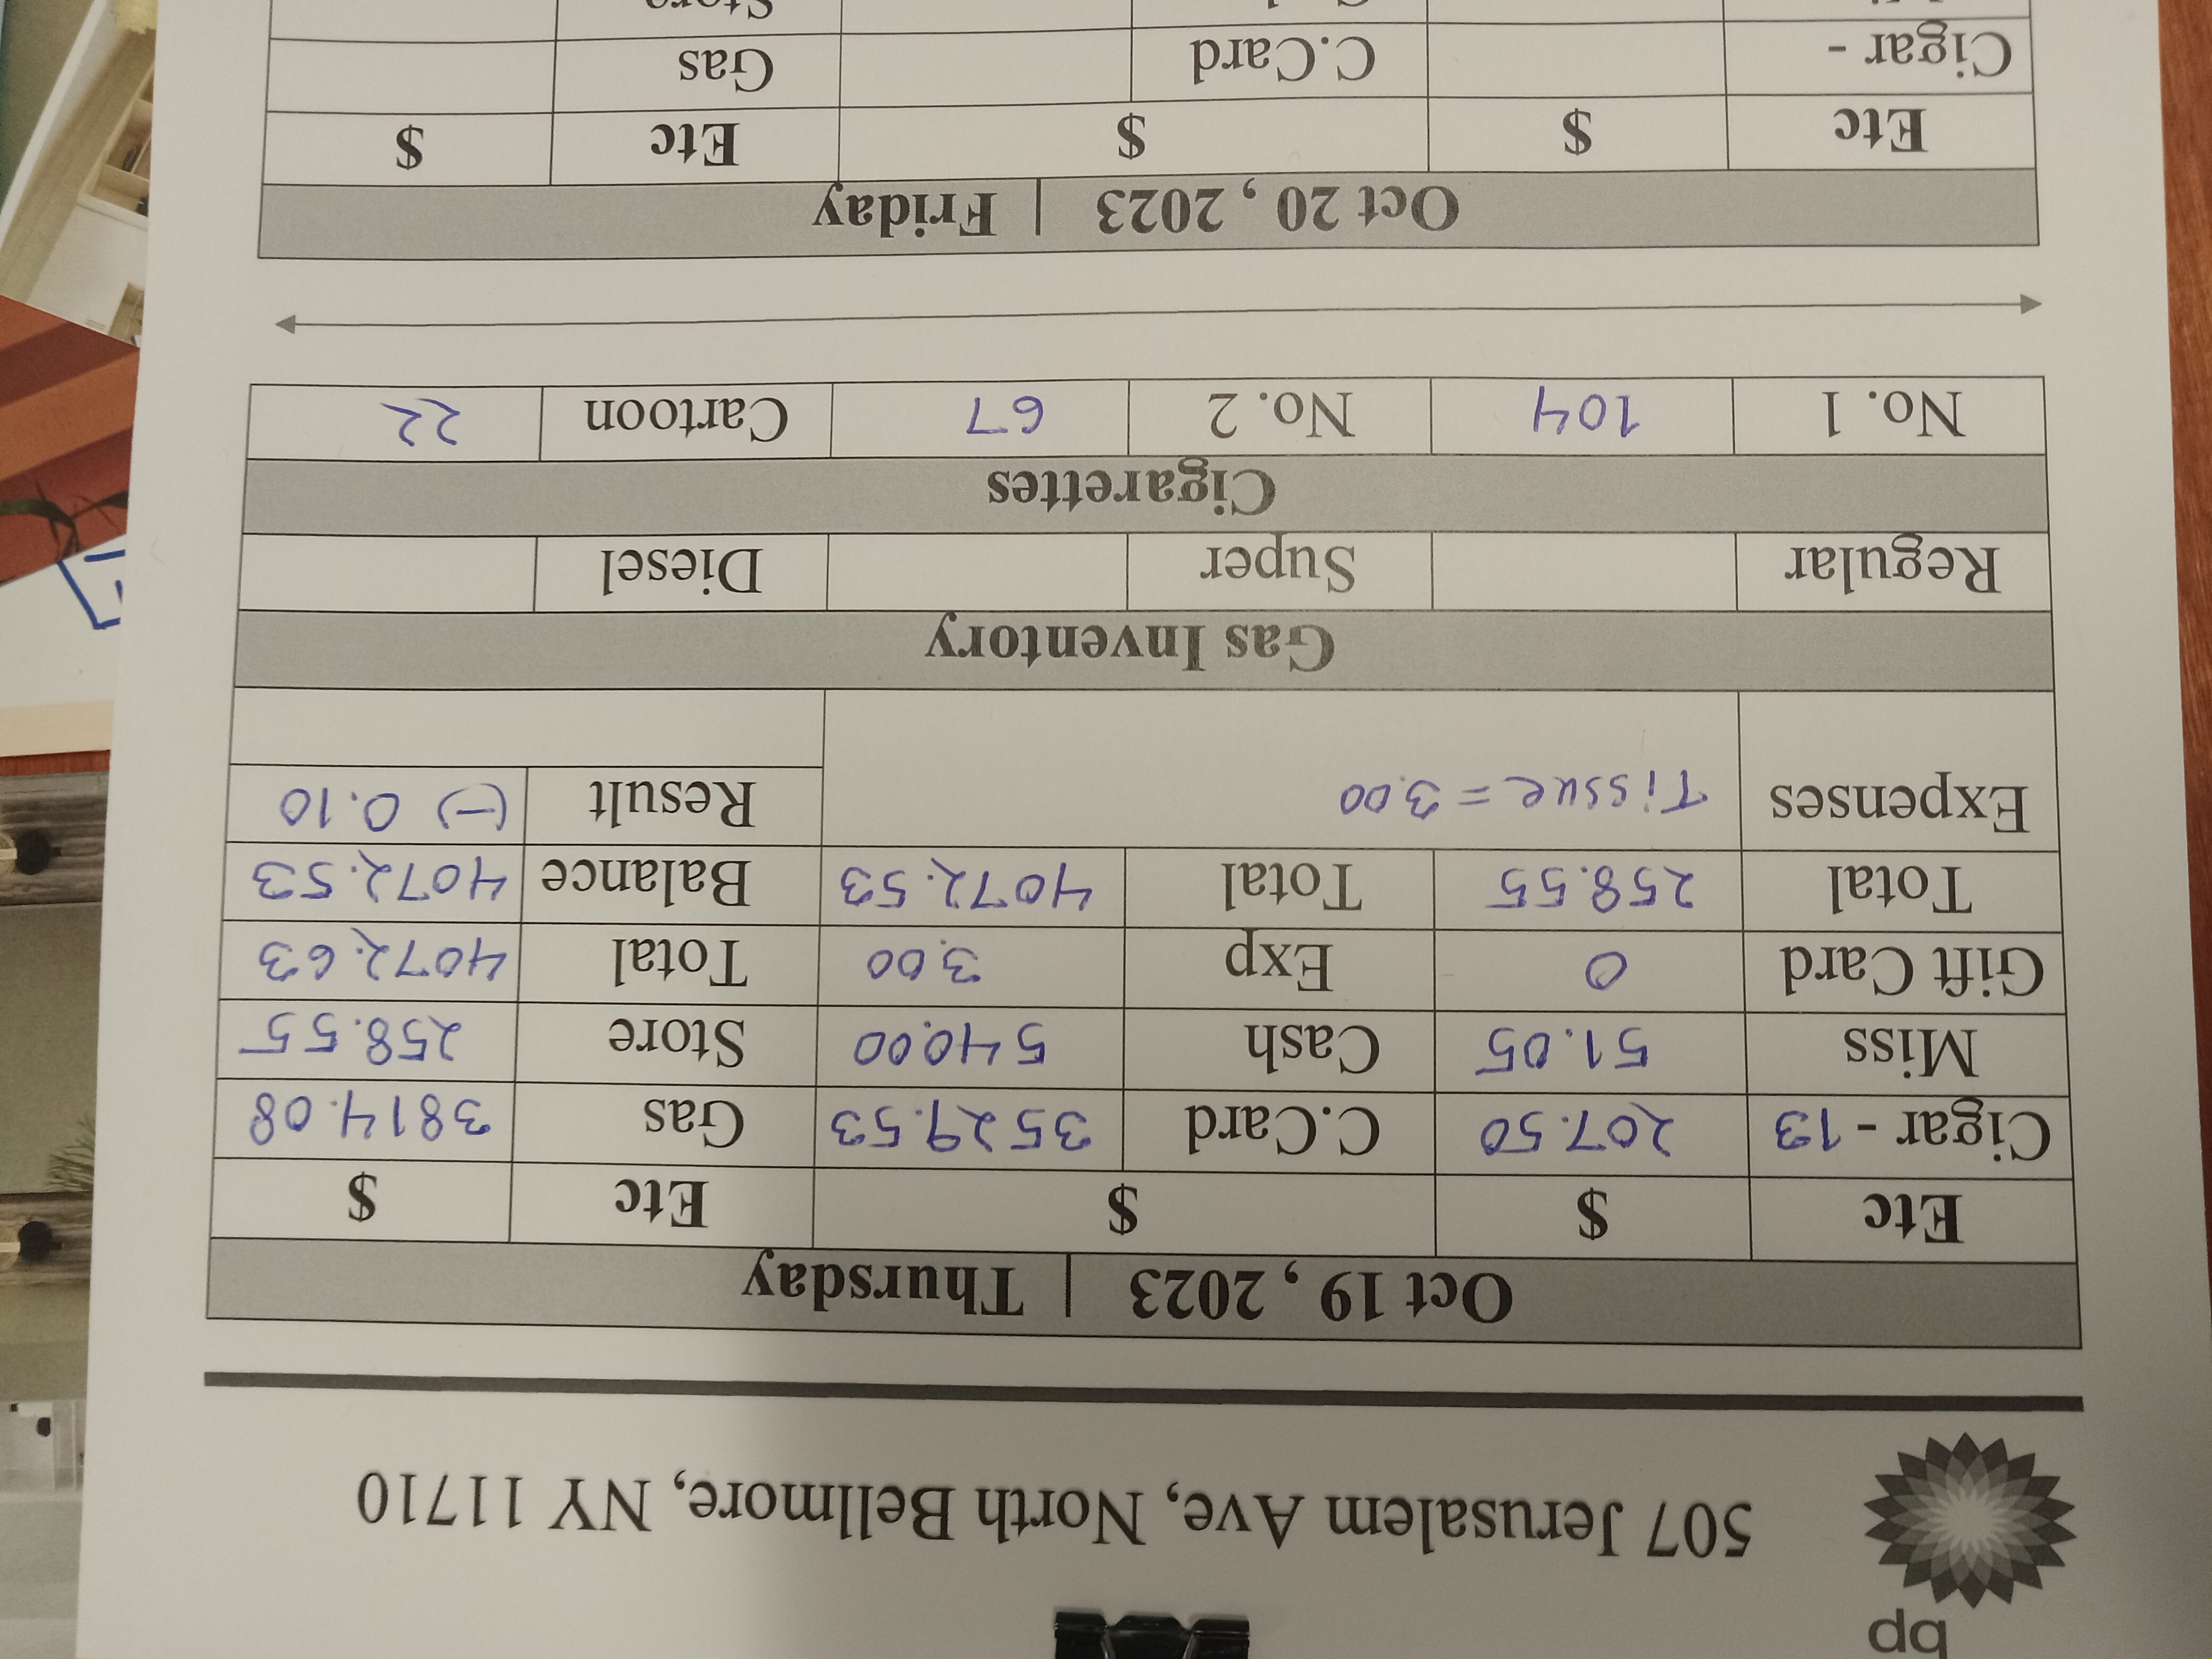 bp
507 Jerusalem Ave, North Bellmore, NY 11710
Oct 19 , 2023 | Thursday
Etc $ $ Etc $
Cigar - 13 207.50 C.Card 3529.53 Gas 3814.08
Miss 51.05 Cash 540.00 Store 258.55
Gift Card 0 Exp 3.00 Total 4072.63
Total 258.55 Total 4072.53 Balance 4072.53
Expenses Tissue = 3.00 Result (-) 0.10
Gas Inventory
Regular Super Diesel
Cigarettes
No. 1 104 No. 2 67 Cartoon 22
Oct 20 , 2023 | Friday
Etc $ $ Etc $
Cigar - C.Card Gas
Store